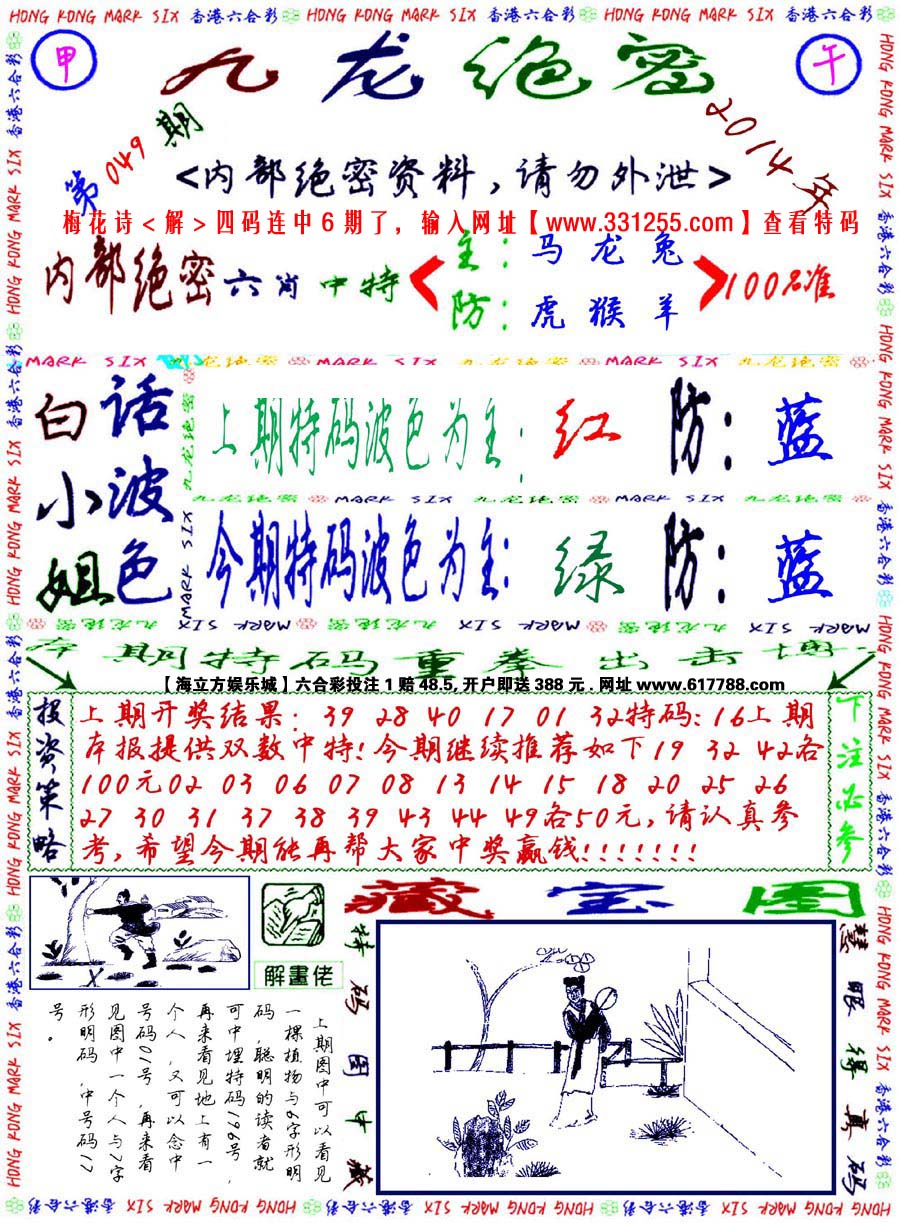 HONG KONG MARK SIX 香港六合彩 HONG KONG MARK SIX 香港六合彩 HONG KONG MARK SIX 香港六合彩
甲 九龙绝密 午
第049期
2014年
<内部绝密资料,请勿外泄>
梅花诗<解>四码连中6期了,输入网址【www.331255.com】查看特码
内部绝密六肖中特
主:马龙兔
防:虎猴羊
100名准
MARK SIX 九龙绝密 MARK SIX 九龙绝密 MARK SIX 九龙绝密
白小姐
话波色
上期特码波色为主:红 防:蓝
九龙绝密 MARK SIX 九龙绝密 MARK SIX 九龙绝密
今期特码波色为主:绿 防:蓝
九龙绝密 MARK SIX 九龙绝密 MARK SIX 九龙绝密 MARK SIX
本期特码重拳出击
【海立方娱乐城】六合彩投注1赔48.5,开户即送388元.网址www.617788.com
投资策略
上期开奖结果:39 28 40 17 01 32特码:16上期
本报提供双数中特!今期继续推荐如下19 32 42各
100元02 03 06 07 08 13 14 15 18 20 25 26
27 30 31 37 38 39 43 44 49各50元,请认真参
考,希望今期能再帮大家中奖赢钱!!!!!!!
下注必参
解畫佬
上期图中可以看见
一棵植物与6字形明
码,聪明的读者就
可中埋特码196号,
再来看见地上有一
个人,又可以念中
号码01号,再来看
见图中一个人与7字
形明码,中号码17
号。
藏宝图
特码图中藏
慧眼得真码
HONG KONG MARK SIX 香港六合彩 HONG KONG MARK SIX 香港六合彩 HONG KONG MARK SIX 香港六合彩